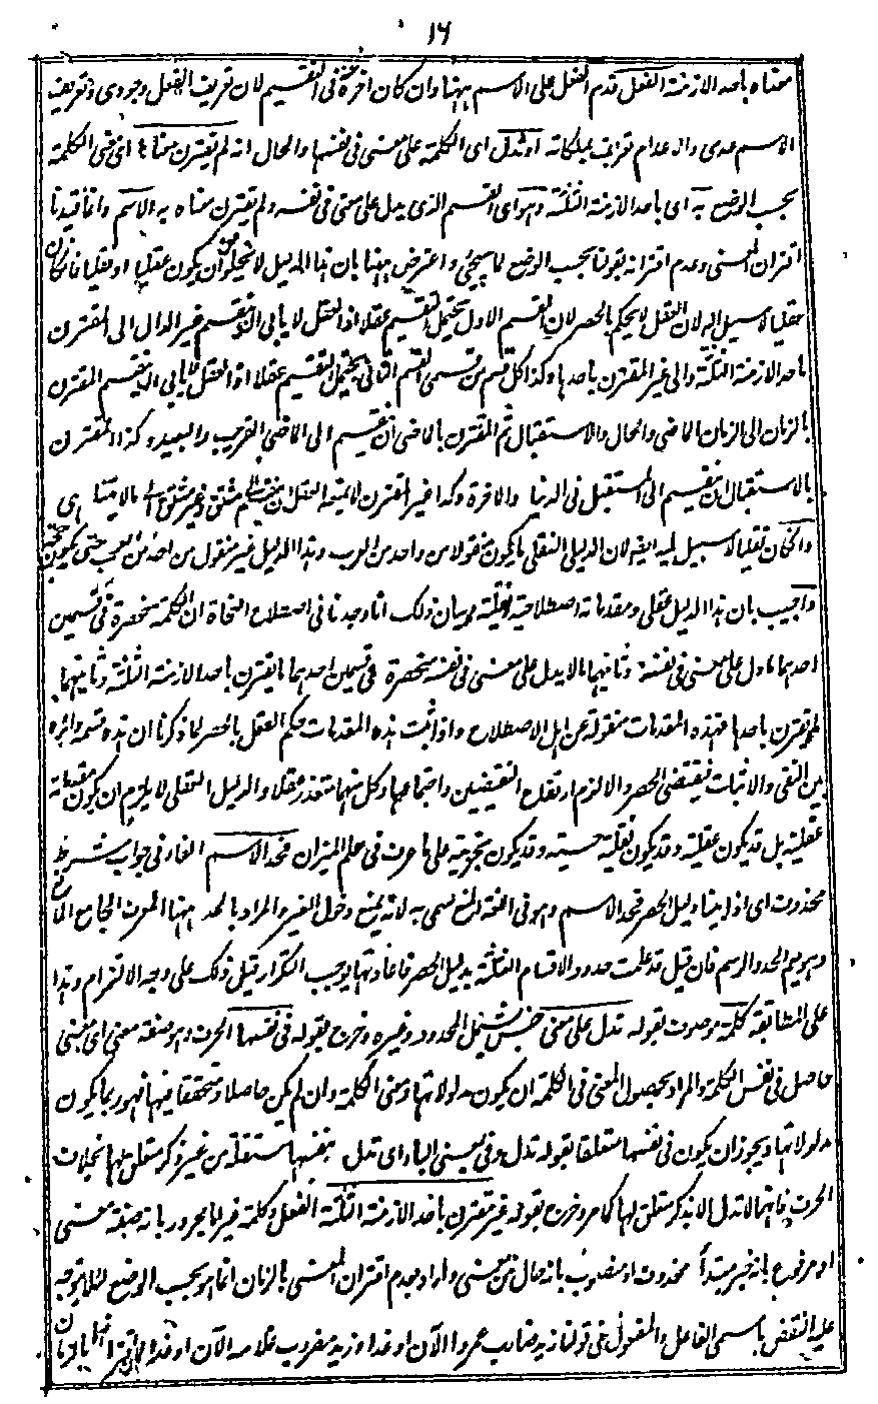 ١٦
معناه باحد الازمنة الفعل قدم الفعل على الاسم ههنا وان كان اخره عنه فى التقسيم لان تعريف الفعل وجودى وتعريف
الاسم عدمى والاعدام تعرف بملكاتها او تدل اى الكلمة على معنى فى نفسها والحال انه لم يقترن معناها اى معنى الكلمة
بحسب الوضع به اى باحد الازمنة الثلثة وهو اى القسم الذى يدل على معنى فى نفسه ولم يقترن معناه به الاسم وانما قيدنا
اقتران المعنى وعدم اقترانه بقولنا بحسب الوضع لما سيجئ واعترض ههنا بان هذا الدليل لا يخلو من ان يكون عقليا او نقليا فان كان
عقليا لا سبيل اليه لان العقل لا يحكم بالحصر لان القسم الاول يحتمل التقسيم عقلا اذ العقل لا يابى ان ينقسم غير الدال الى المقترن
باحد الازمنة الثلثة والى غير المقترن باحدها وكذا كل قسم من قسمى القسم الثانى يحتمل التقسيم عقلا اذ العقل لا يابى ان ينقسم المقترن
بالزمان الى الزمان الماضى والحال والاستقبال ثم المقترن بالماضى ان ينقسم الى الماضى القريب والبعيد وكذا المقترن
بالاستقبال ان ينقسم الى المستقبل فى الدنيا والاخرة وكذا غير المقترن لا يمنع العقل ان ينقسم الى مشتق وغير مشتق الى ما لا يتناهى
وان كان نقليا لا سبيل اليه ايضا لان الدليل النقلى ما يكون منقولا من واحد من العرب وهذا الدليل غير منقول من احد من العرب حتى يكون حجة
واجيب بان هذا الدليل عقلى ومقدماته اصطلاحية نقلية وبيان ذلك انا وجدنا فى اصطلاح النحاة ان الكلمة منحصرة فى قسمين
احدهما ما دل على معنى فى نفسه وثانيهما ما لا يدل على معنى فى نفسه منحصرة فى قسمين احدهما ما يقترن باحد الازمنة الثلثة وثانيهما
ما لم يقترن باحدها فهذه المقدمات منقولة عن اهل الاصطلاح واذا ثبت هذه المقدمات حكم العقل بالحصر لما ذكرنا ان هذه قسمة دائرة
بين النفى والاثبات فيقتضى الحصر والا لزم ارتفاع النقيضين واجتماعهما وكل منهما متعذر عقلا والدليل العقلى لا يلزم ان يكون مقدماته
عقلية بل قد يكون عقلية وقد يكون نقلية حسية وقد يكون تجربية على ما عرف فى علم الميزان فحد الاسم الفاء فى جواب شرط
محذوف اى اذا بينا دليل الحصر فحد الاسم وهو فى اللغة المنع سمى به لانه يمنع دخول الغير والمراد بالحد ههنا المعرف الجامع المانع
وهو يعم الحد والرسم فان قيل قد علمت حدود الاقسام الثلثة بدليل الحصر فاعادتها يوجب التكرار قيل ذلك على وجه الالتزام وهذا
على المطابقة كلمة موصوف بقوله تدل على معنى جنس يشمل المحدود وغيره وخرج بقوله فى نفسها الحرف وهو صفة معنى اى معنى
حاصل فى نفس الكلمة والمراد بحصول المعنى فى الكلمة ان يكون مدلولاتها ومعنى الكلمة وان لم يكن حاصلا ومتحققا فيها فهو ربما يكون
مدلولاتها ويجوز ان يكون فى نفسها متعلقا بقوله تدل وفى بمعنى الباء اى تدل بنفسها مستقلة من غير ذكر متعلق لها بخلاف
الحرف فانها لا تدل الا بذكر متعلق لها كما مر وخرج بقوله غير مقترن باحد الازمنة الثلثة الفعل وكلمة غير اما مجرور بانه صفة معنى
او مرفوع بانه خبر مبتدأ محذوف او منصوب بانه حال من معنى واراد بعدم اقتران المعنى بالزمان انما هو بحسب الوضع لئلا يتوجه
عليه النقض باسمى الفاعل والمفعول فى قولنا زيد ضارب عمروا الآن او غدا وزيد مضروب غلامه الآن او غدا لان اقترانهما بالزمان